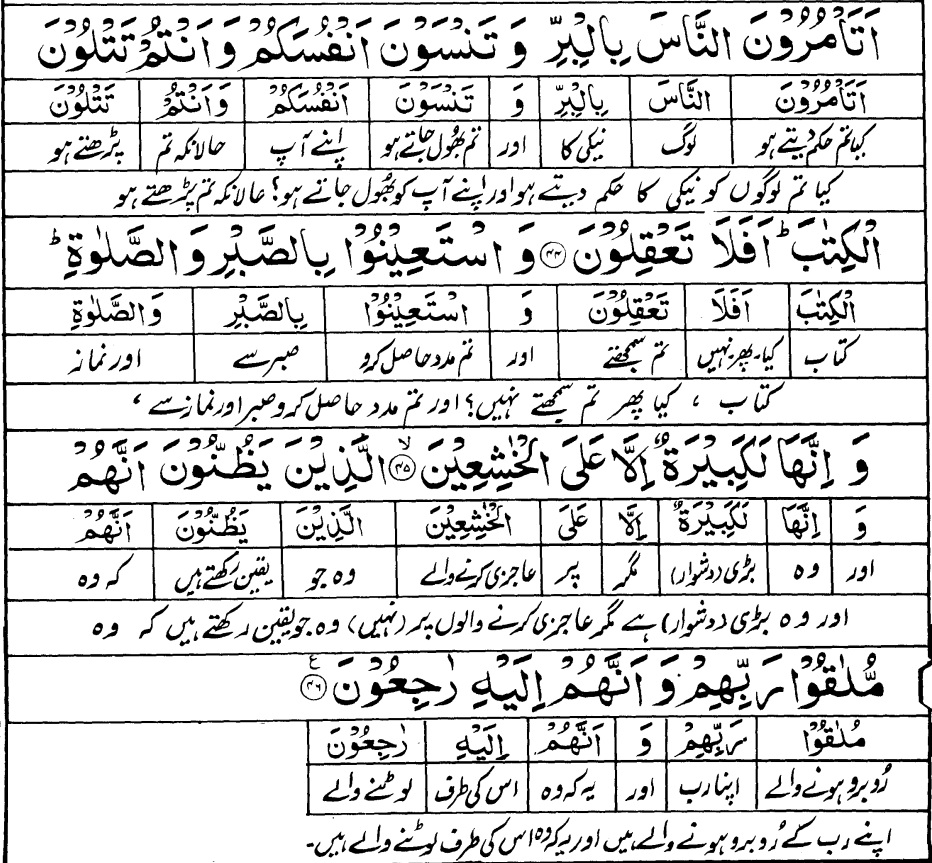 اَتَاْمُرُوْنَ النَّاسَ بِالْبِرِّ وَ تَنْسَوْنَ اَنْفُسَكُمْ وَ اَنْتُمْ تَتْلُوْنَ
اَتَاْمُرُوْنَ النَّاسَ بِالْبِرِّ وَ تَنْسَوْنَ اَنْفُسَكُمْ وَاَنْتُمْ تَتْلُوْنَ
کیا تم حکم دیتے ہو لوگ نیکی کا اور تم بھول جاتے ہو اپنے آپ حالانکہ تم پڑھتے ہو
کیا تم لوگوں کو نیکی کا حکم دیتے ہو اور اپنے آپ کو بھول جاتے ہو؟ حالانکہ تم پڑھتے ہو
الْكِتٰبَ ؕ اَفَلَا تَعْقِلُوْنَ ۴۴ وَ اسْتَعِيْنُوْا بِالصَّبْرِ وَ الصَّلٰوةِ ؕ
الْكِتٰبَ اَفَلَا تَعْقِلُوْنَ وَ اسْتَعِيْنُوْا بِالصَّبْرِ وَالصَّلٰوةِ
کتاب کیا۔پھر نہیں تم سمجھتے اور تم مدد حاصل کرو صبر سے اور نماز
کتاب ، کیا پھر تم سمجھتے نہیں؟ اور تم مدد حاصل کرو صبر اور نماز سے ،
وَ اِنَّهَا لَكَبِيْرَةٌ اِلَّا عَلَى الْخٰشِعِيْنَ ۙ ۴۵ الَّذِيْنَ يَظُنُّوْنَ اَنَّهُمْ
وَ اِنَّهَا لَكَبِيْرَةٌ اِلَّا عَلَى الْخٰشِعِيْنَ الَّذِيْنَ يَظُنُّوْنَ اَنَّهُمْ
اور وہ بڑی (دشوار) مگر پر عاجزی کرنے والے وہ جو یقین رکھتے ہیں کہ وہ
اور وہ بڑی (دشوار) ہے مگر عاجزی کرنے والوں پر (نہیں) وہ جو یقین رکھتے ہیں کہ وہ
مُّلٰقُوْا رَبِّهِمْ وَ اَنَّهُمْ اِلَيْهِ رٰجِعُوْنَ ۴۶ ع
مُلٰقُوْا رَبِّهِمْ وَ اَنَّهُمْ اِلَيْهِ رٰجِعُوْنَ
رُوبرو ہونے والے اپنا رب اور یہ کہ وہ اس کی طرف لوٹنے والے
اپنے رب کے رُوبرو ہونے والے ہیں اور یہ کہ وہ اس کی طرف لوٹنے والے ہیں۔